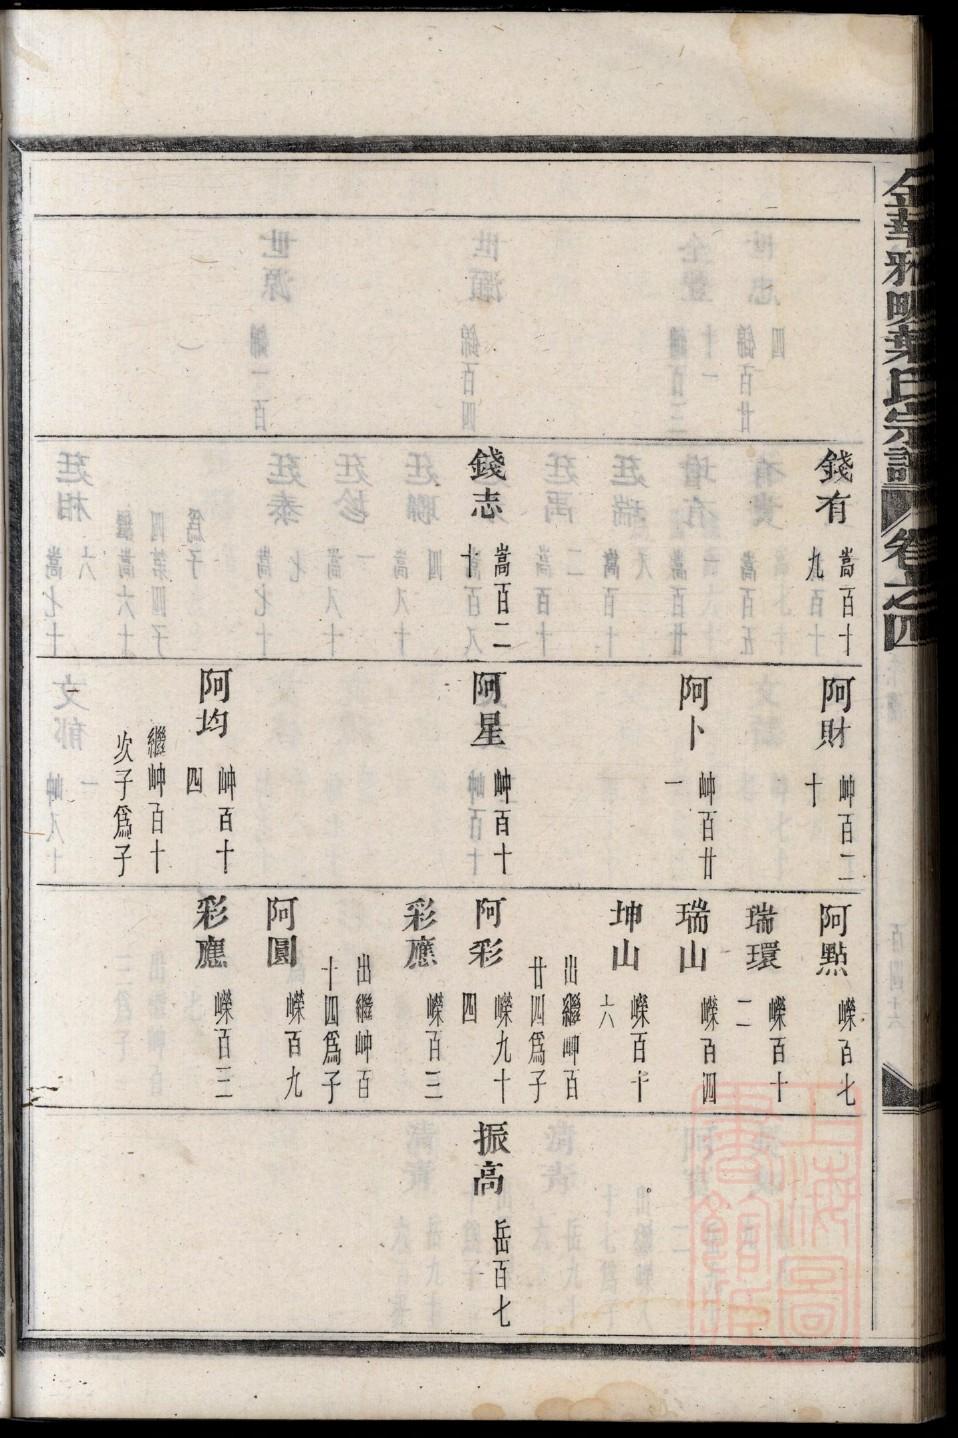 金華雅畈葉氏宗譜 卷之四
錢有 嵩百十九
錢志 嵩百二十
阿財 岫百二十
阿卜 岫百廿一
阿星 岫百十
阿均 岫百十四
繼岫百十
次子爲子
阿點 嶸百七
瑞環 嶸百十二
瑞山 嶸百四
坤山 嶸百十六
出繼岫百
廿四爲子
阿彩 嶸九十四
彩應 嶸百三
出繼岫百
十四爲子
阿圓 嶸百九
彩應 嶸百三
振高 岳百七
上海圖書館藏